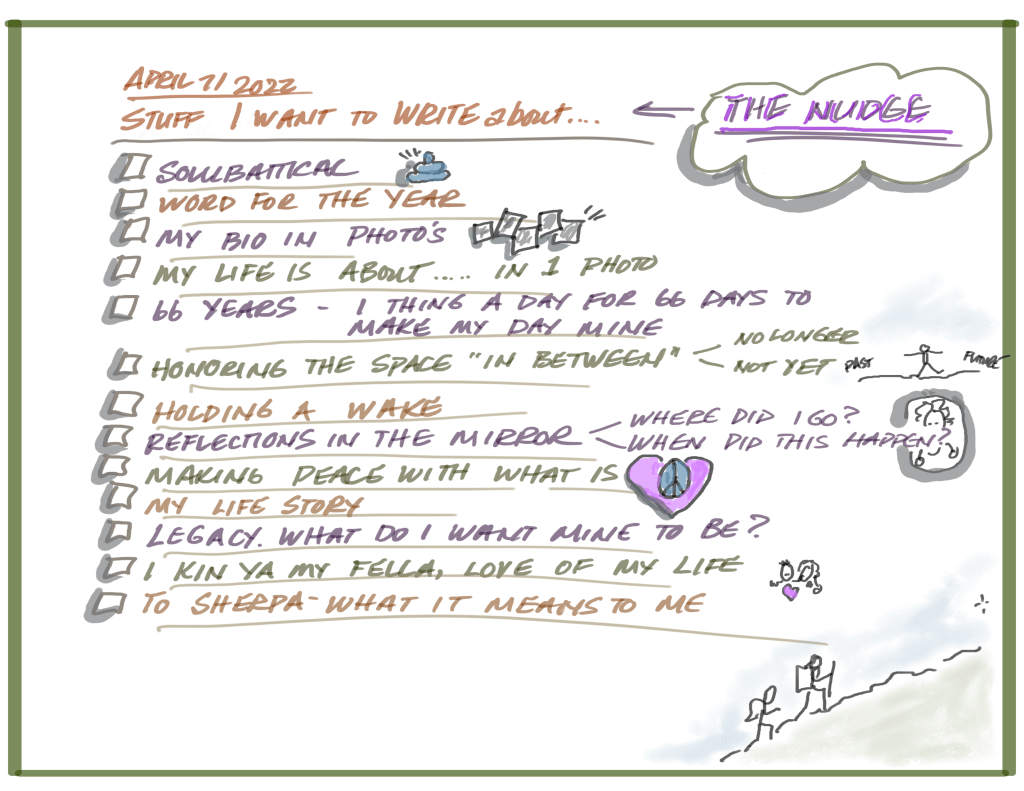 APRIL 7/2022
STUFF I WANT TO WRITE about....
THE NUDGE
SOULBATTICAL
WORD FOR THE YEAR
MY BIO IN PHOTO'S
MY LIFE IS ABOUT..... IN 1 PHOTO
66 YEARS - 1 THING A DAY FOR 66 DAYS TO
MAKE MY DAY MINE
HONORING THE SPACE "IN BETWEEN"
NO LONGER
NOT YET
PAST
FUTURE
HOLDING A WAKE
REFLECTIONS IN THE MIRROR
WHERE DID I GO?
WHEN DID THIS HAPPEN?
MAKING PEACE WITH WHAT IS
MY LIFE STORY
LEGACY. WHAT DO I WANT MINE TO BE?
I KIN YA MY FELLA, LOVE OF MY LIFE
TO SHERPA - WHAT IT MEANS TO ME